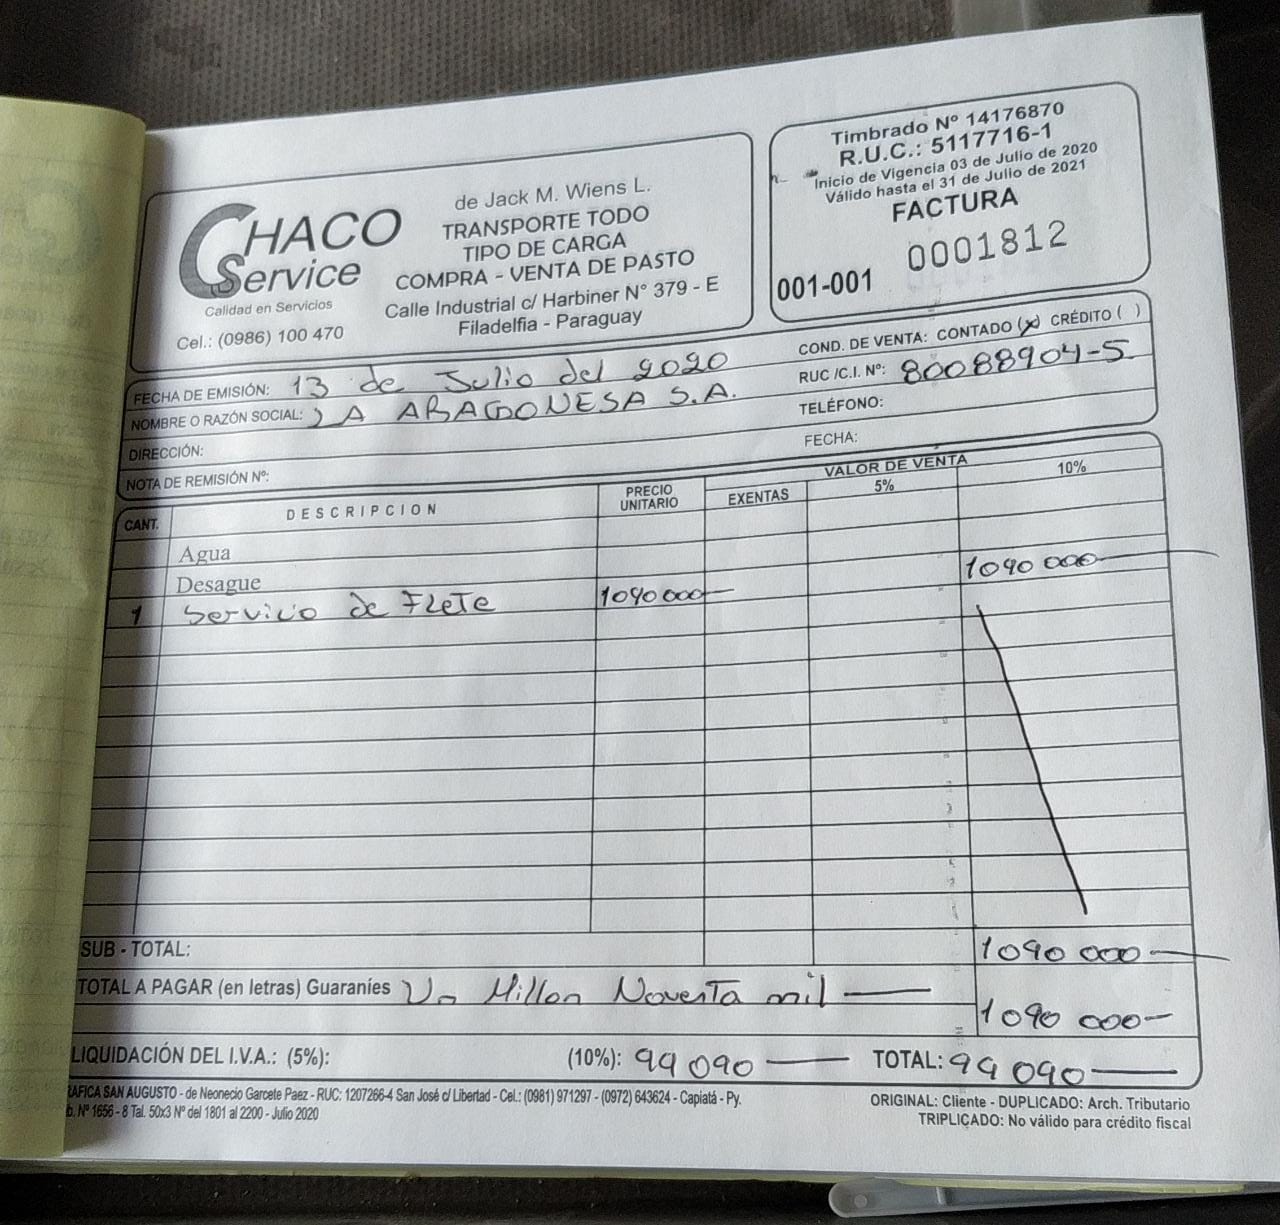 CHACO
Service
Calidad en Servicios
Cel.: (0986) 100 470
de Jack M. Wiens L.
TRANSPORTE TODO
TIPO DE CARGA
COMPRA - VENTA DE PASTO
Calle Industrial c/ Harbiner N° 379 - E
Filadelfia - Paraguay
Timbrado Nº 14176870
R.U.C.: 5117716-1
Inicio de Vigencia 03 de Julio de 2020
Válido hasta el 31 de Julio de 2021
FACTURA
001-001 0001812
FECHA DE EMISIÓN: 13 de Julio del 2020
COND. DE VENTA: CONTADO (x) CRÉDITO ( )
NOMBRE O RAZÓN SOCIAL: LA ARAGONESA S.A.
RUC /C.I. Nº: 80088904-5
DIRECCIÓN:
TELÉFONO:
NOTA DE REMISIÓN Nº:
FECHA:
CANT. DESCRIPCION PRECIO UNITARIO VALOR DE VENTA
EXENTAS 5% 10%
Agua
Desague
1 Servicio de Flete 1090000 1090 000
SUB - TOTAL: 1090 000
TOTAL A PAGAR (en letras) Guaraníes Un Millon Noventa mil
1 090 000
LIQUIDACIÓN DEL I.V.A.: (5%): (10%): 99 090 TOTAL: 99 090
RAFICA SAN AUGUSTO - de Neonecio Garcete Paez - RUC: 1207266-4 San José c/ Libertad - Cel.: (0981) 971297 - (0972) 643624 - Capiatá - Py.
b. Nº 1656 - 8 Tal. 50x3 Nº del 1801 al 2200 - Julio 2020
ORIGINAL: Cliente - DUPLICADO: Arch. Tributario
TRIPLICADO: No válido para crédito fiscal